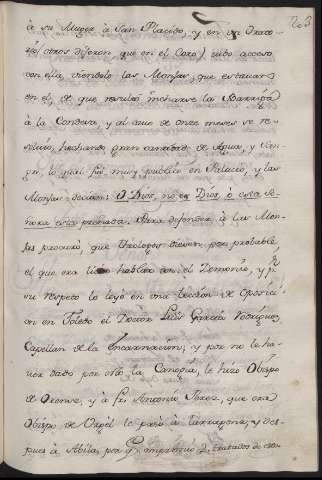 203
à su Muger à San Placido, y en un Orato-
rio (otros dijeron que en el Coro) tubo acceso
con ella, viendolo las Monjas, que estavan
en el, de que resultó incharse la Barriga
à la Condesa, y al cavo de once meses se re-
solvió, hechando gran cantidad de Agua, y San-
gre, lo qual fue muy publico en Palacio, y las
Monjas decian: O Dios, no es Dios, ò esta Se-
ñora está preñada. Para defender à las Mon-
jas procuró, que Theologos diesen por probable,
el que era licito hablar con el Demonio, y pr.
su respeto lo leyó en una leccion de Oposici-
on en Toledo el Doctor Luis Garcia Rodriguez,
Capellan de la Encarnacion; y por no le ha-
ver dado por esto la Canogia, le hizo Obispo
de Orense, y à fr. Antonio Perez, que era
Obispo de Urgel le pasó à Tarragona, y des-
pues à Abila, por q. imprimió 2 tratados de esta